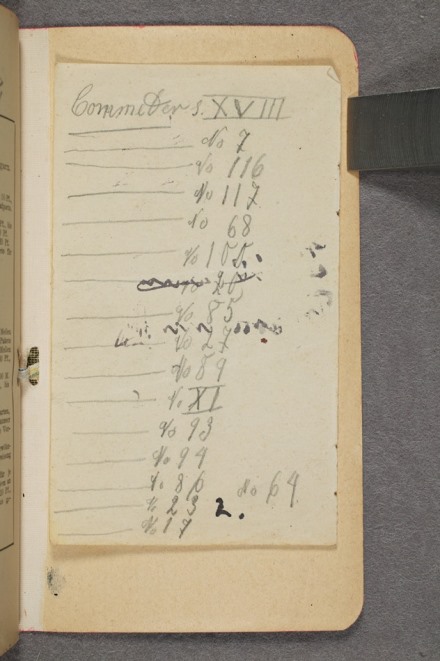 Commeders. XVIII
No 7
No 116
No 117
No 68
No 105.
No 85
No 27
No 89
No XI
No 93
No 94
No 86 No 64
No 23 2.
No 17